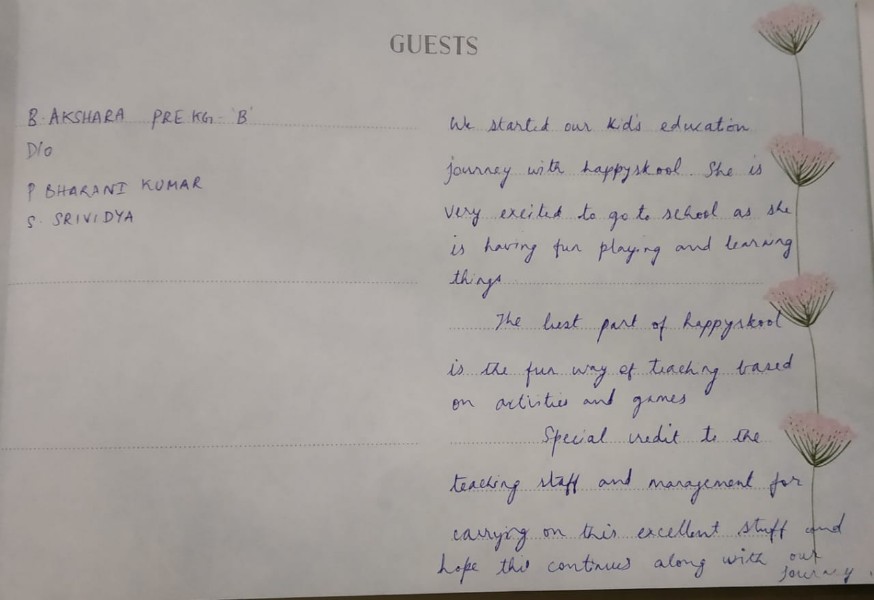 GUESTS
B. AKSHARA PRE KG- 'B'
D/o
P BHARANI KUMAR
S. SRIVIDYA
We started our kid's education
journey with happyskool. She is
very excited to go to school as she
is having fun playing and learning
things
The best part of happyskool
is the fun way of teaching based
on activities and games
Special credit to the
teaching staff and management for
carrying on this excellent stuff and
hope this continues along with our
journey.